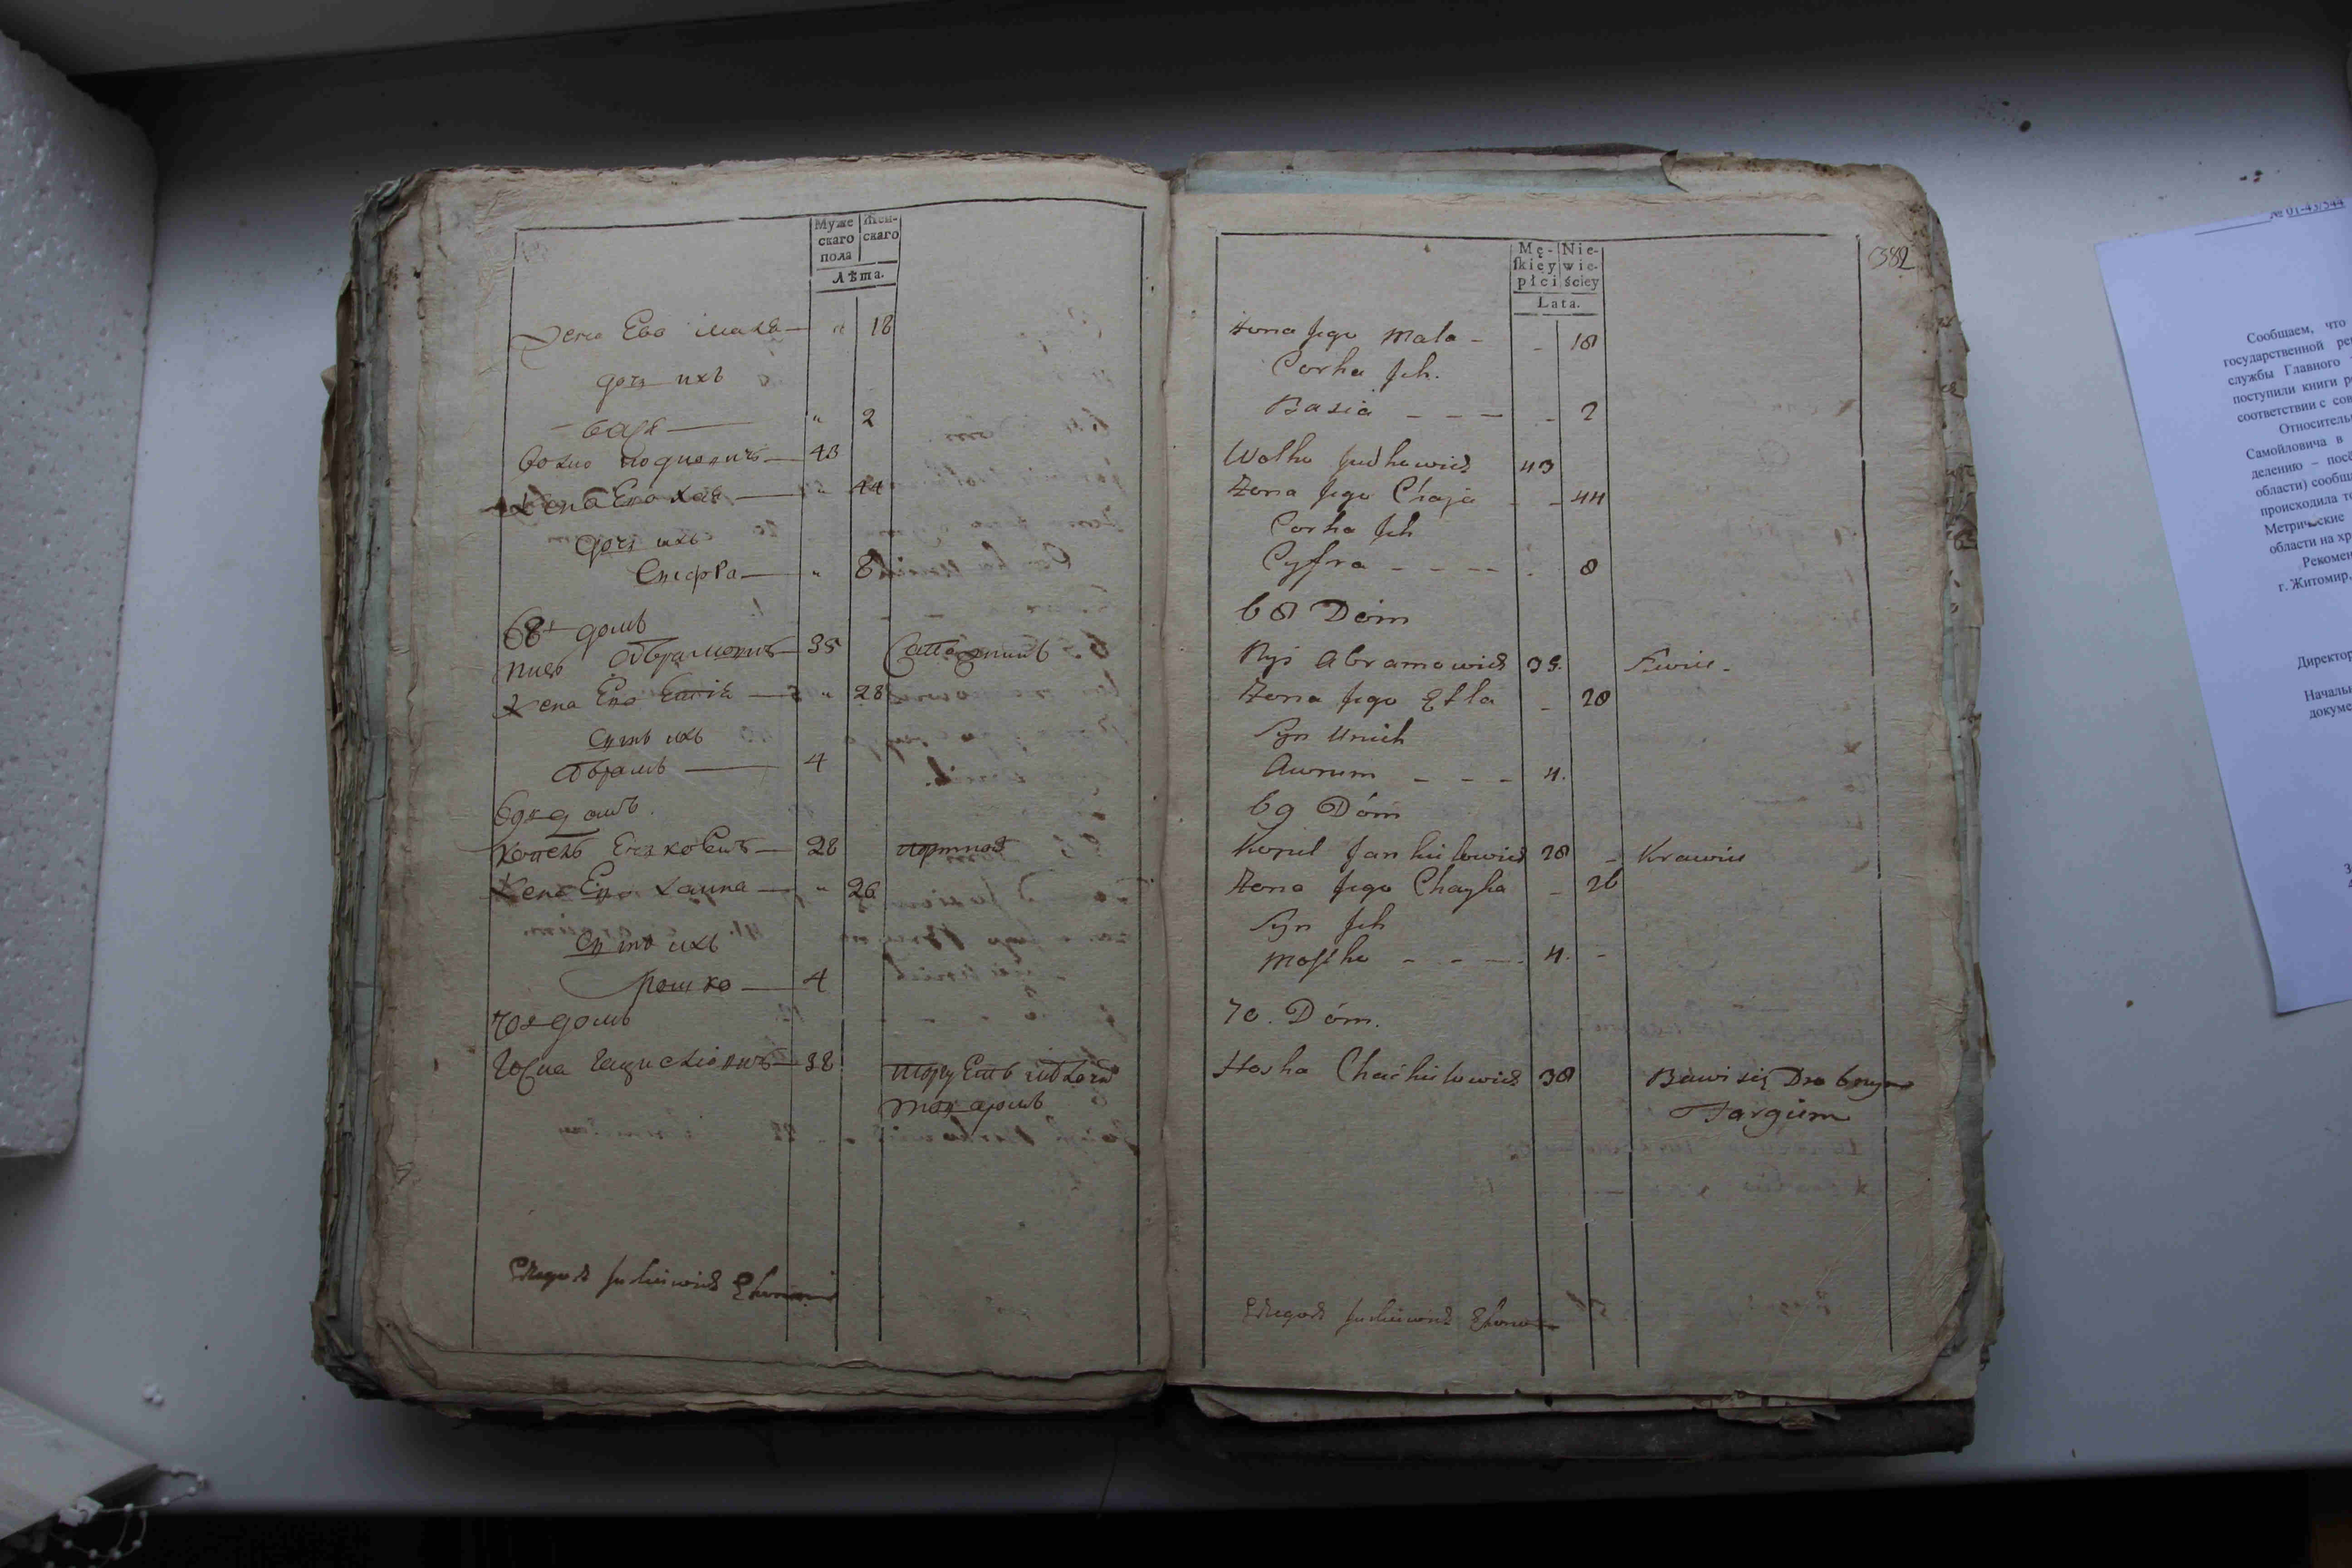 Муже
скаго
пола
Жен-
скаго
Лѣта.
Жена Его Мала — " 18
дочь ихъ
Бася — " 2
Волко Юдковичъ — 43
Жена Его Хая — " 44
дочь ихъ
Сыфра — " 8
68й домъ
Абрамовичъ — 35 Сапожникъ
Жена Его — " 28
Сынъ ихъ
Абрамъ — 4
69й домъ
Копель — 28 портной
Жена Его Хайка — " 26
Сынъ ихъ
Мошко — 4
70й домъ
38 торгуетъ мелочнымъ
товаромъ
Mę-
skiey
płci
Nie-
wie-
ściey
Lata.
382
Zona Jego Mala - - 18
Corka Jch.
Basia - - - - 2
Wolko Judkowicz 43
Zona Jego Chaja - - 44
Corka Jch
Cyfra - - - - - 8
68 Dom
Abramowicz 35. Szwiec -
Zona Jego Etla - 28
Syn Unich
Awrum - - - 4.
69 Dóm
Kopel Jankielowicz 28 - Krawiec
Zona Jego Chayka - 26
Syn Jch
Moszko - - - 4. -
70. Dóm.
Hoska 38 Bawi się Drobnym
Targiem
№ 01-43/544
Сообщаем, что
государственной
службы Главного
поступили книги
соответствии с
Самойловича в
делению – посё
области)
происходила
Метрические
области на
г. Житомир,
Директор